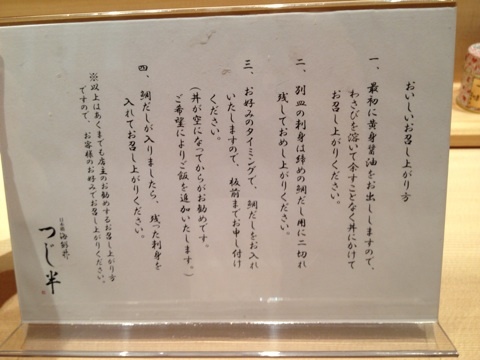 おいしいお召し上がり方
一、最初に黄身醤油をお出ししますので、
わさびを溶いて余すことなく丼にかけて
お召し上がりください。
二、別皿の刺身は締めの鯛だし用に二切れ
残しておめし上がりください。
三、お好みのタイミングで、鯛だしをお入れ
いたしますので、板前までお申し付け
ください。
(丼が空になってからがお勧めです。
ご希望によりご飯を追加いたします。)
四、鯛だしが入りましたら、残った刺身を
入れてお召し上がりください。
※以上はあくまでも店主のお勧めするお召し上がり方
ですので、お客様のお好みでお召し上がりください。
日本橋海鮮丼
つじ半